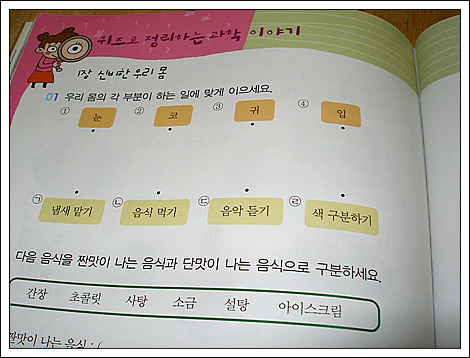 퀴즈로 정리하는 과학 이야기
1장 신비한 우리 몸
01 우리 몸의 각 부분이 하는 일에 맞게 이으세요.
① 눈 ② 코 ③ 귀 ④ 입
㉠ 냄새 맡기 ㉡ 음식 먹기 ㉢ 음악 듣기 ㉣ 색 구분하기
다음 음식을 짠맛이 나는 음식과 단맛이 나는 음식으로 구분하세요.
간장 초콜릿 사탕 소금 설탕 아이스크림
짠맛이 나는 음식 : (